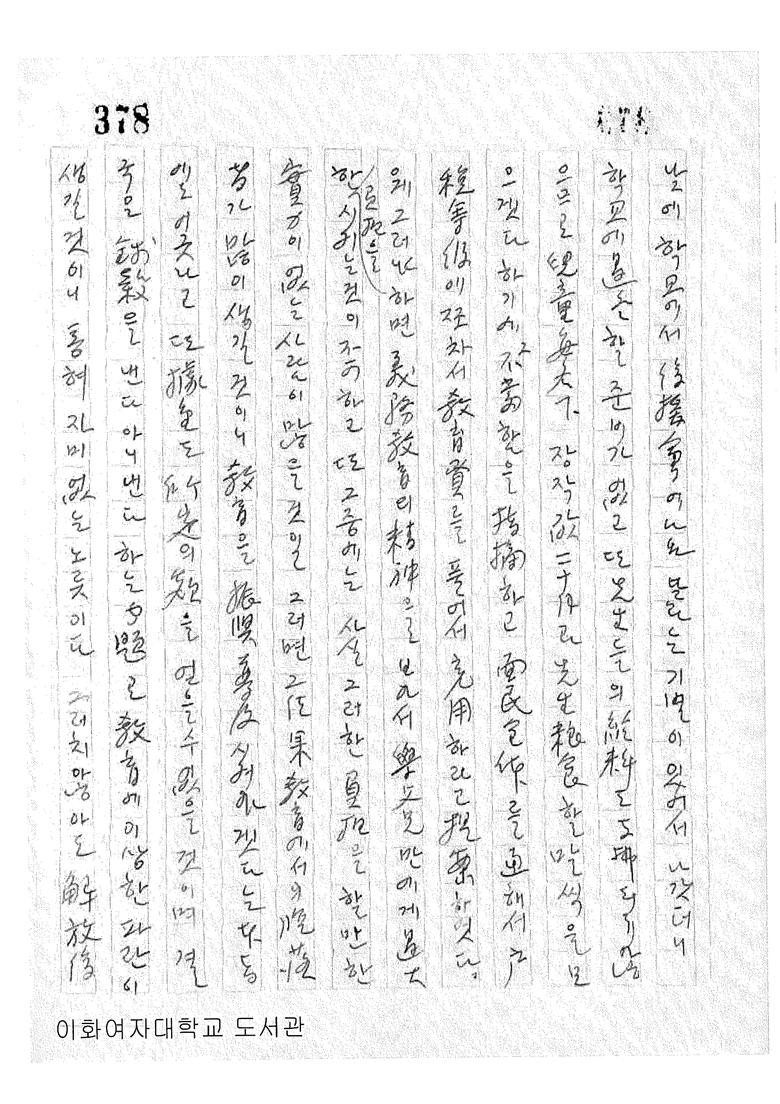 378
678
날에 학교에서 後援會여니 오 달라는 기별이 있어서 나갔더니
학교에 送을 할 준비가 없고 또 先生들의 給料도 支拂되기 않
으므로 兒童每名下 장작값 二十円과 先生粮食 할 말씩을 모
으겠다 하기에 不當함을 指摘하고 面民全体를 通해서 戶
稅等級에 조차서 敎育費를 풀어서 充用하라고 提案하엿다.
웨 그러냐 하면 義務敎育의 精神으로 보아서 學父兄만에게 過大
한 負担을 시키는것이 不可하고 또 그중에는 사실 그러한 負担을 할만한
實力이 없는 사람이 많을 것일 그러면 그 結果 敎育에서의 墮落
者가 많이 생길 것이니 敎育을 振興 普及 시켜가겠다는
에 어긋나고 또 據金도 所定의 額을 얻을 수 없을 것이며 결
국은 錢穀을 낸다 아니 낸다 하는 問題로 敎育에 이상한 파란이
생길 것이니 통혀 자미 없는 노릇이다 그러치 않아도 解放後
이화여자대학교 도서관